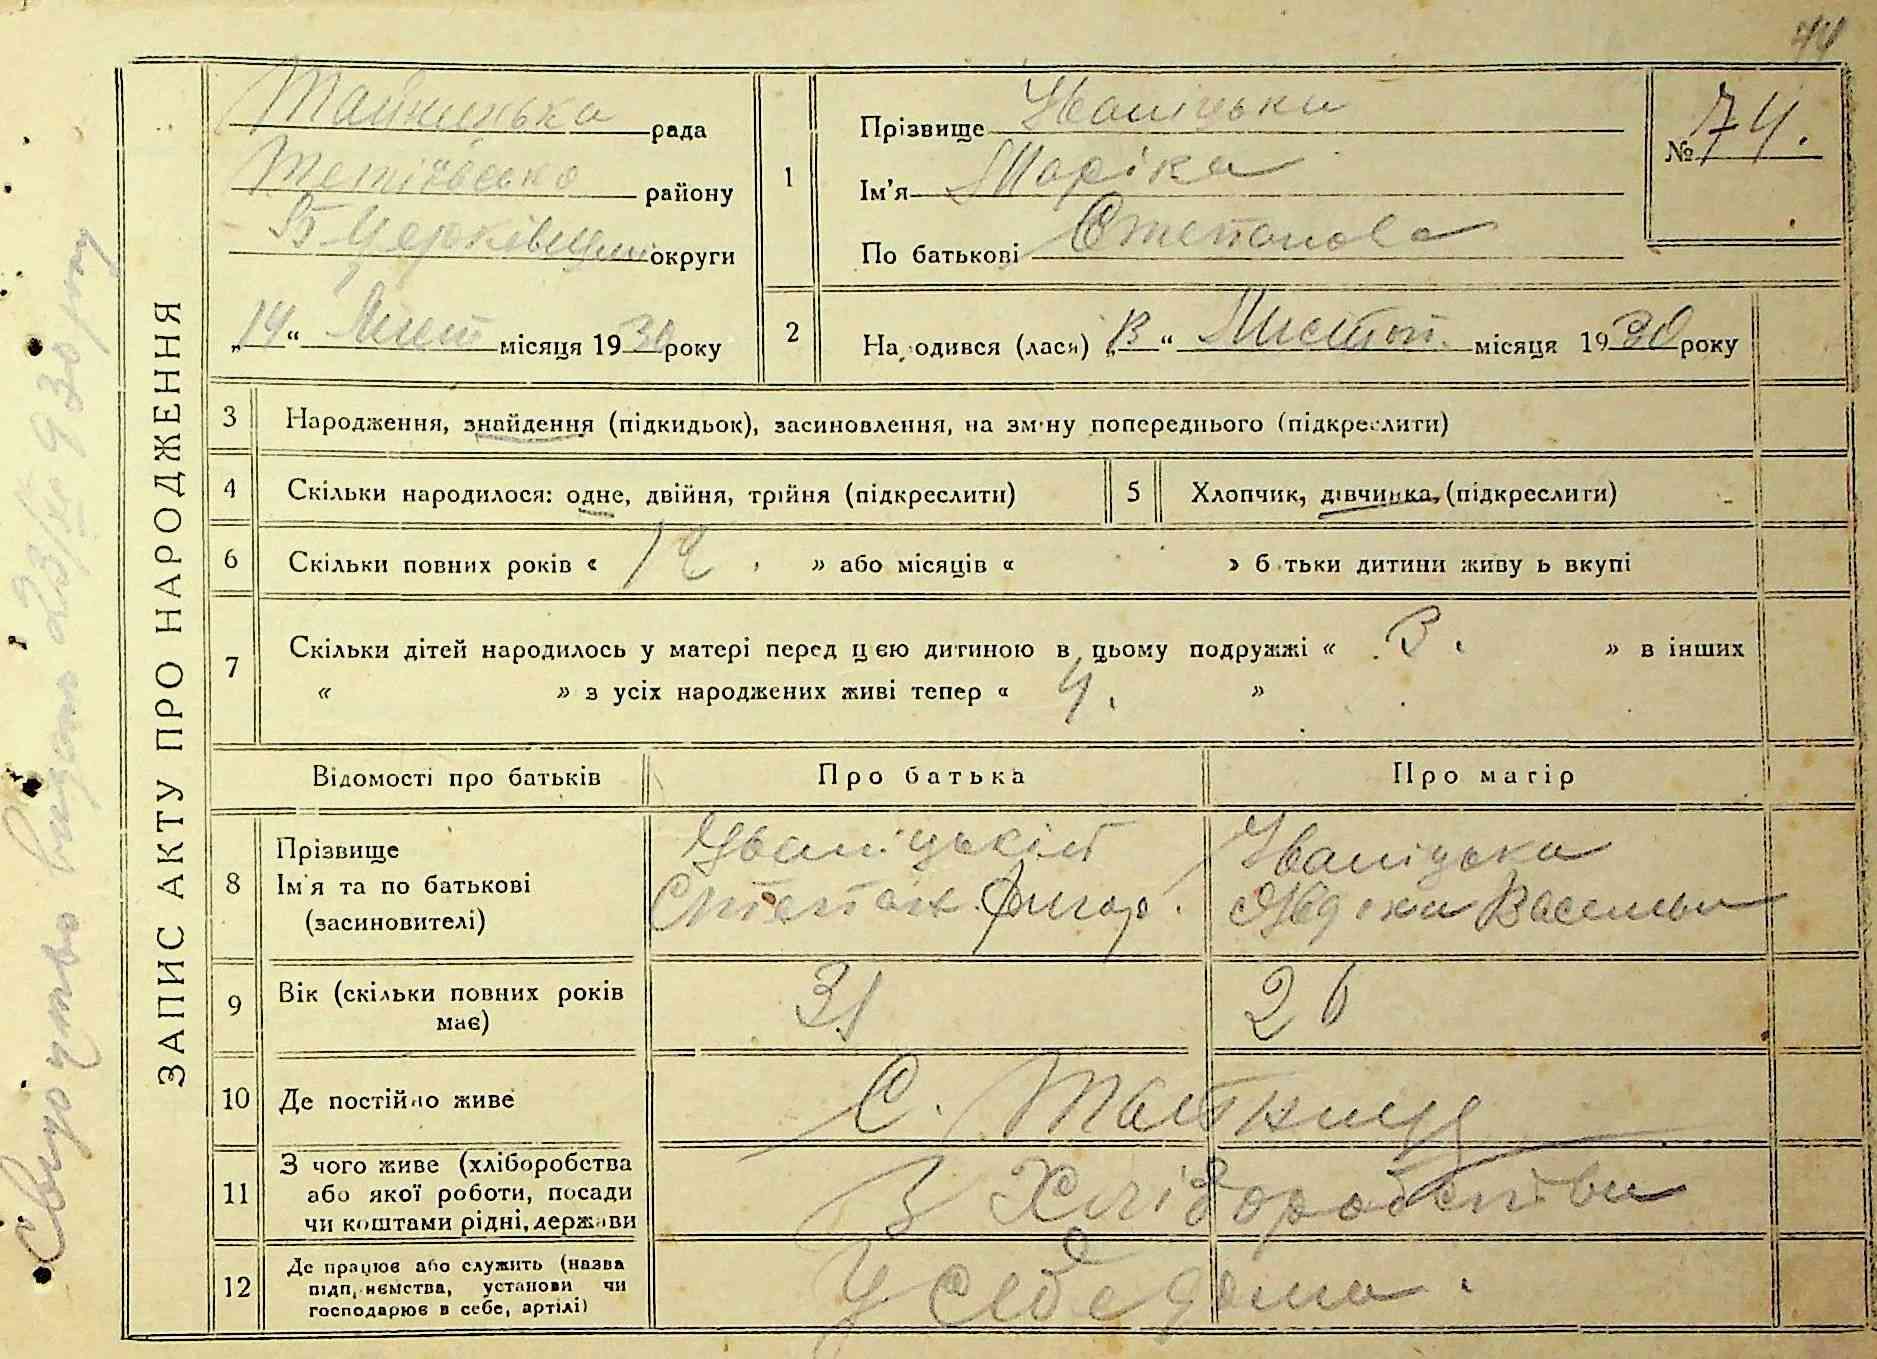 44
ЗАПИС АКТУ ПРО НАРОДЖЕННЯ
рада
Тетіївсько району
Б Церківщини округи
„14“ Лист місяця 1930 року
1
Прізвище Іваніцька
Ім'я Маріка
По батькові Степанова
№ 74.
2
На одився (лася) „13“ Листоп. місяця 1930 року
3
Народження, знайдення (підкидьок), засиновлення, на зміну попереднього (підкреслити)
4
Скільки народилося: одне, двійня, трійня (підкреслити)
5
Хлопчик, дівчинка, (підкреслити)
6
Скільки повних років « 12. » або місяців « » б тьки дитини живу ь вкупі
7
Скільки дітей народилось у матері перед цією дитиною в цьому подружжі « 3. » в інших
« » з усіх народжених живі тепер « 4. »
Відомості про батьків
Про батька
Про матір
8
Прізвище
Ім'я та по батькові
(засиновителі)
Іваніцькій
Степан Григор.
Іваніцька
Васильов
9
Вік (скільки повних років
має)
31
26
10
Де постійно живе
С. Тайниця
11
З чого живе (хліборобства
або якої роботи, посади
чи коштами рідні, держави
З Хліборобства
12
Де працює або служить (назва
підп, иємства, установи чи
господарює в себе, артілі)
У себе дома.
Свідоцтво видать 23/XI 930 року